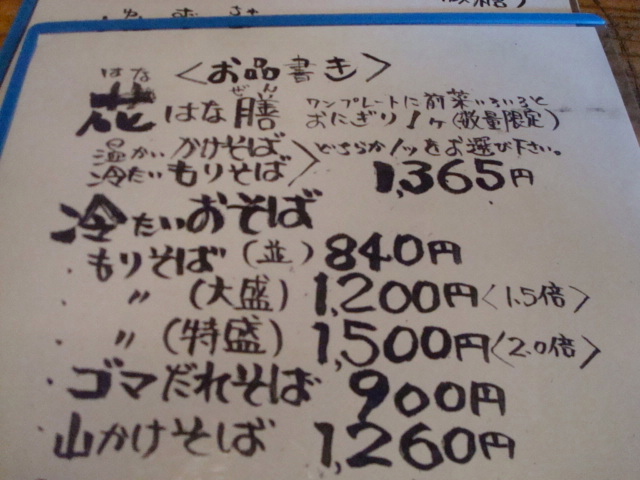 〈お品書き〉
はな ぜん
花はな膳 ワンプレートに前菜いろいろと
おにぎり1ヶ(数量限定)
温かいかけそば
冷たいもりそば 〉どちらか1ッをお選び下さい。
1,365円
冷たいおそば
・もりそば(並) 840円
・〃(大盛) 1,200円〈1.5倍〉
・〃(特盛) 1,500円〈2.0倍〉
・ゴマだれそば 900円
・山かけそば 1,260円